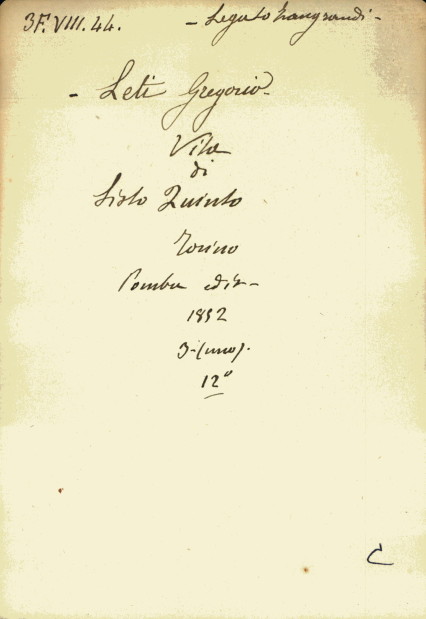 3F.VIII.44.
- Legato Frangrandi -
- Leti Gregorio -
Vita
di
Sisto Quinto
Torino
Pomba edit -
1852
3-(uno).
12°
C